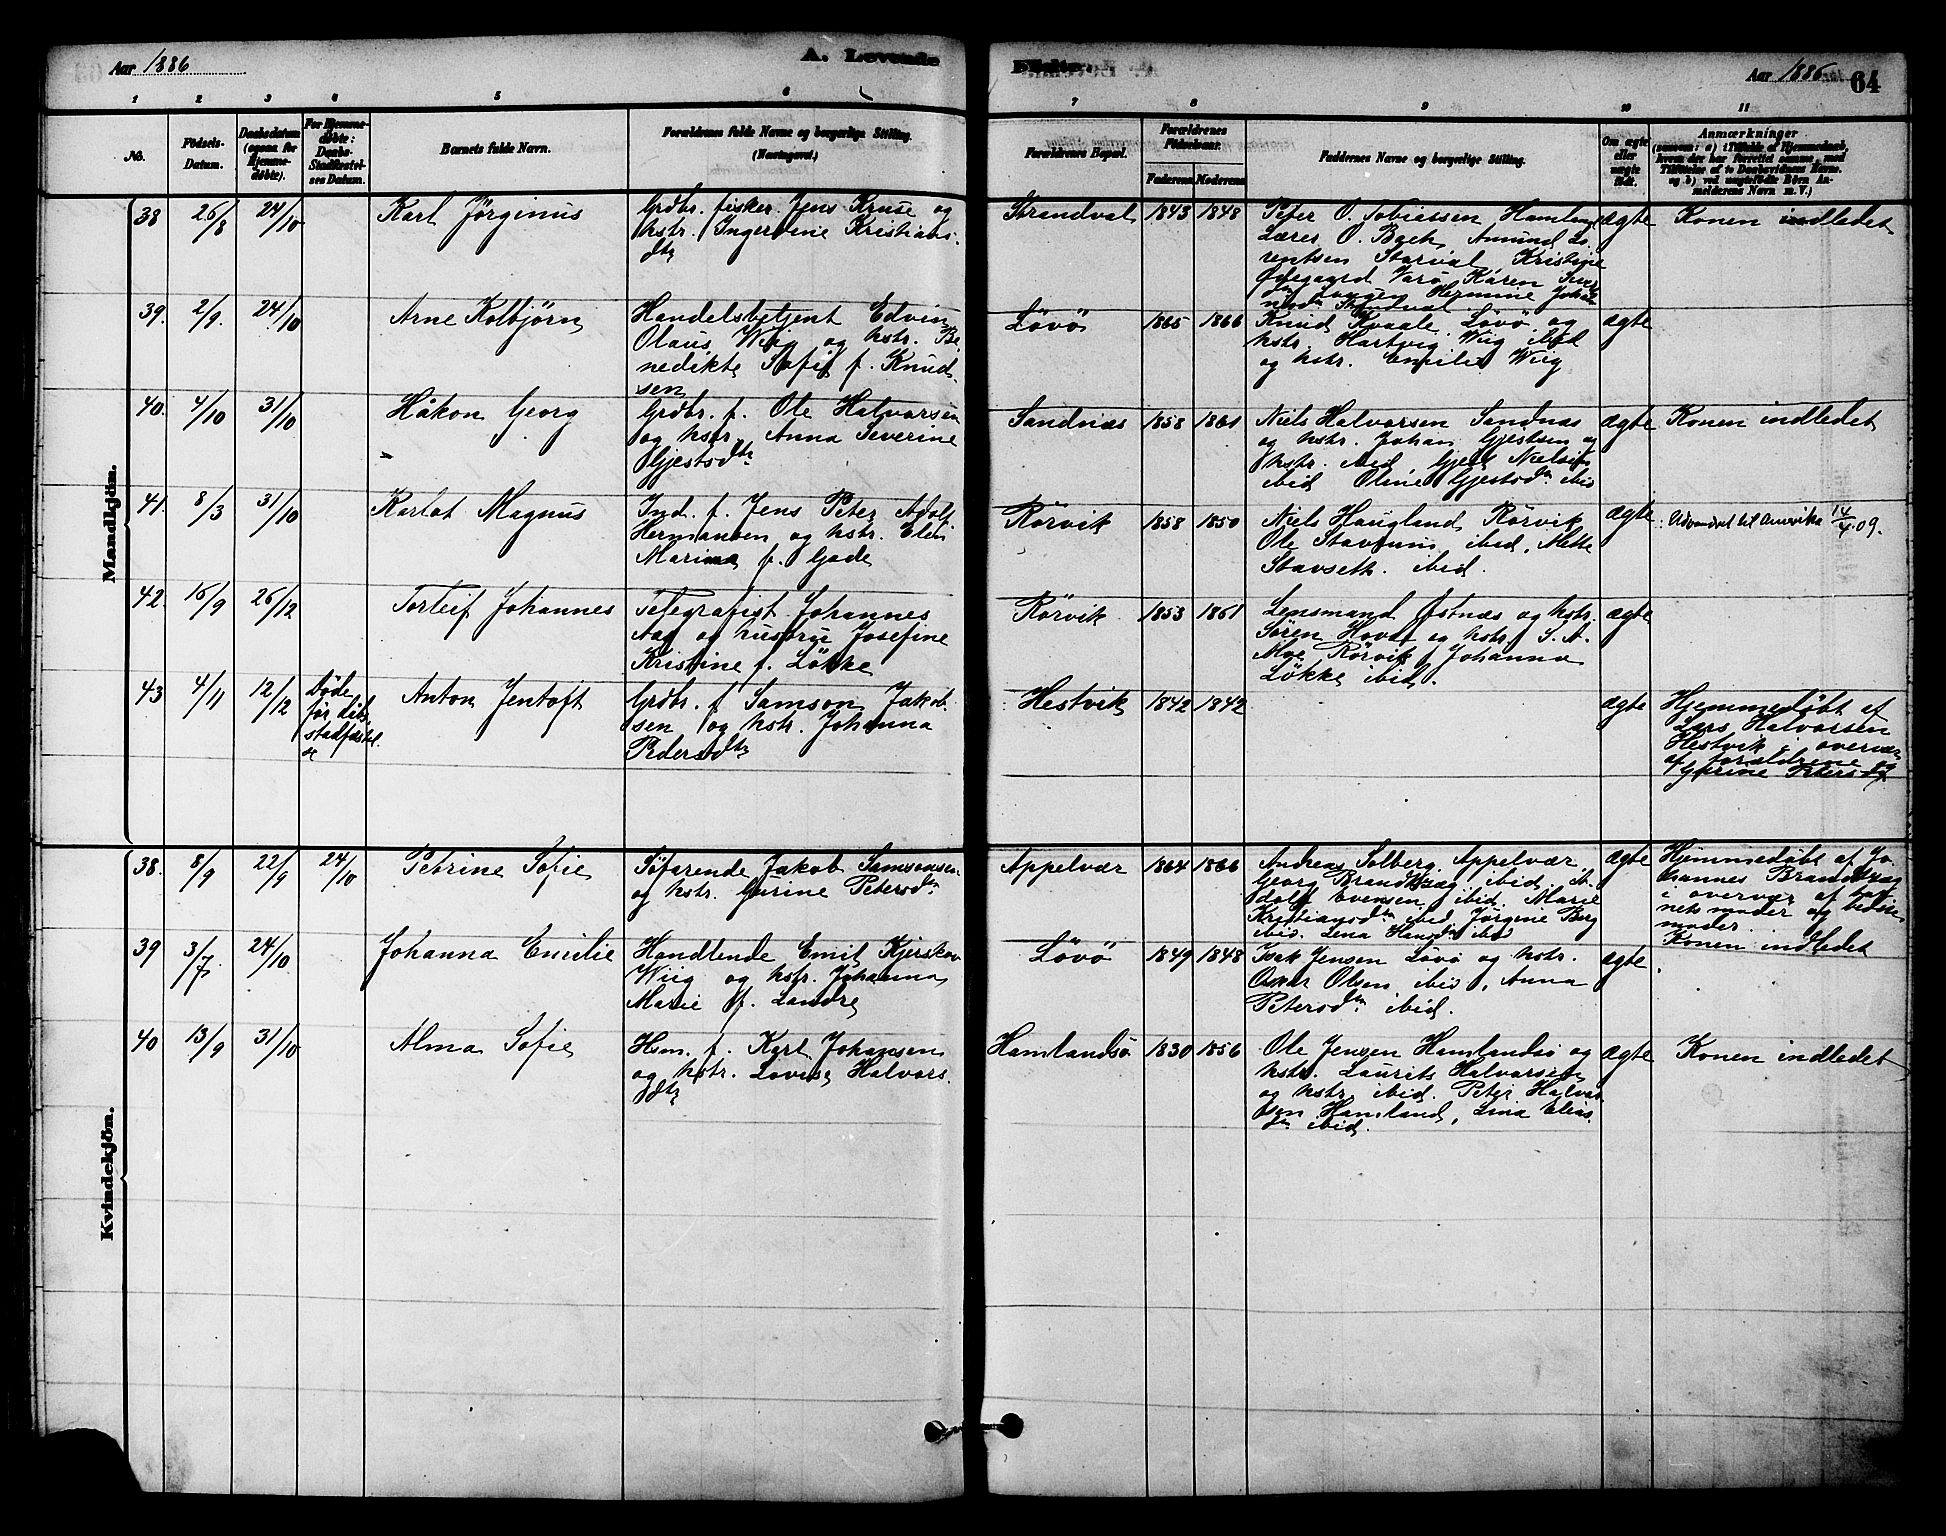 Aar 1886
A. Levende
Födte.
Aar 1886
64
1 2 3 4 5 6 7 8 9 10 11
No.
Födsels-
Datum.
Daabsdatum
(ogsaa for
Hjemme-
døbte).
For Hjemme-
døbte:
Daabs-
Stadfæstel-
ses Datum.
Barnets fulde Navn.
Forældrenes fulde Navne og borgerlige Stilling.
Forældrenes Bopæl.
Forældrenes
Födselsaar.
Faderens
Moderens
Faddernes Navne og borgerlige Stilling.
Om ægte
eller
uægte
født.
Anmærkninger
Mandkjön.
38 26/8 24/10
Karl Jörginus
Grdbr. fisker Jens Kruse og
hstr. Ingervine Kristians.
dtr
Strandval 1843 1848
Peter O. Tobiassen
O. Bach, Amund Lo
rentsen Storval Kristine
Ødegaard Varö Karen
Hermine Johan
ægte
Konen indledet
39. 2/9. 24/10
Arne Kolbjörn
Handelsbetjent Edvin
Olaus Wiig og hstr. Be
nedikte Sofie f. Knud-
sen
Lövö 1865 1866
Knud Kvaale Lövö og
hstr. Hartvig Wiig ibid
og hstr. Emilie Wiig
ægte
40. 4/10 31/10
Håkon Georg
Grdbr. f. Ole Halvorsen
og hstr. Anna Severine
Gjestsdtr
Sandnæs 1858 1861
Niels Halvorsen Sandnæs
og hstr. Johan Gjestsen og
hstr. ibid. Gjert
ibid Oline Gjestsdtr ibid
ægte
Konen indledet
41. 8/3 31/10
Karlot Magnus
Ind. f. Jens Peter Adolf
Hermansen og hstr. Elen
Marina f. Gade
Rörvik 1858 1850
Niels Haugland Rörvik
Ole Stavrum ibid, Mette
Stavseth. ibid.
ægte
Udvandret til Amerika 14/4 09.
42. 16/9 26/12
Torleif Johannes
Telegrafist Johannes
Aag og hustru Josefine
Kristine f. Løkke
Rörvik 1853 1861
Lensmand Østnæs og hstr.
Sören Hovde og hstr. S. A.
Moe Rörvik Johanna
Løkke ibid.
ægte
43 4/11 12/12
Døde
før
stadfæstel
se
Anton Jentoft
Grdbr. f Samson Jakob
sen og hstr. Johanna
Pedersdtr
Hestvik 1842 1842
ægte
Hjemmedøbt af
Lars Halvorsen
Hestvik i overvær
af forældrene og
Gurine Petersdtr
Kvindekjön.
38. 8/9 22/9 24/10
Petrine Sofie
Søfarende Jakob Samsonsen
og hstr. Gurine Petersdtr
Appelvær 1864 1866
Andreas Solberg, Appelvær
Georg Brandtzæg ibid, A-
dolf Evensen ibid. Marie
Kristiansdtr ibid, Jörgine Berg
ibid. Lena Hansdtr ibid
ægte
Hjemmedøbt af Jo
hannes Brandtzæg
i overvær af bar
nets moder og bedste
moder.
Konen indledet
39 3/7. 24/10
Johanna Emilie
Handlende Emil Kjerskov
Wiig og hstr. Johanna
Marie f. Landre
Lövö 1849 1848
Isak Jensen Lövö og hstr.
Oskar Olsen ibid, Anna
Petersdtr ibid.
ægte
40 13/9 31/10
Alma Sofie
Hsm. f. Karl Johansen
og hstr. Lovise Halvors.
dtr
Hamlandsö 1830 1856
Ole Jensen Hamlandsö og
hstr. Laurits Halvorsen
og hstr ibid. Peter Halvor
sen Hamland, Lina Elias
dtr ibid.
ægte
Konen indledet